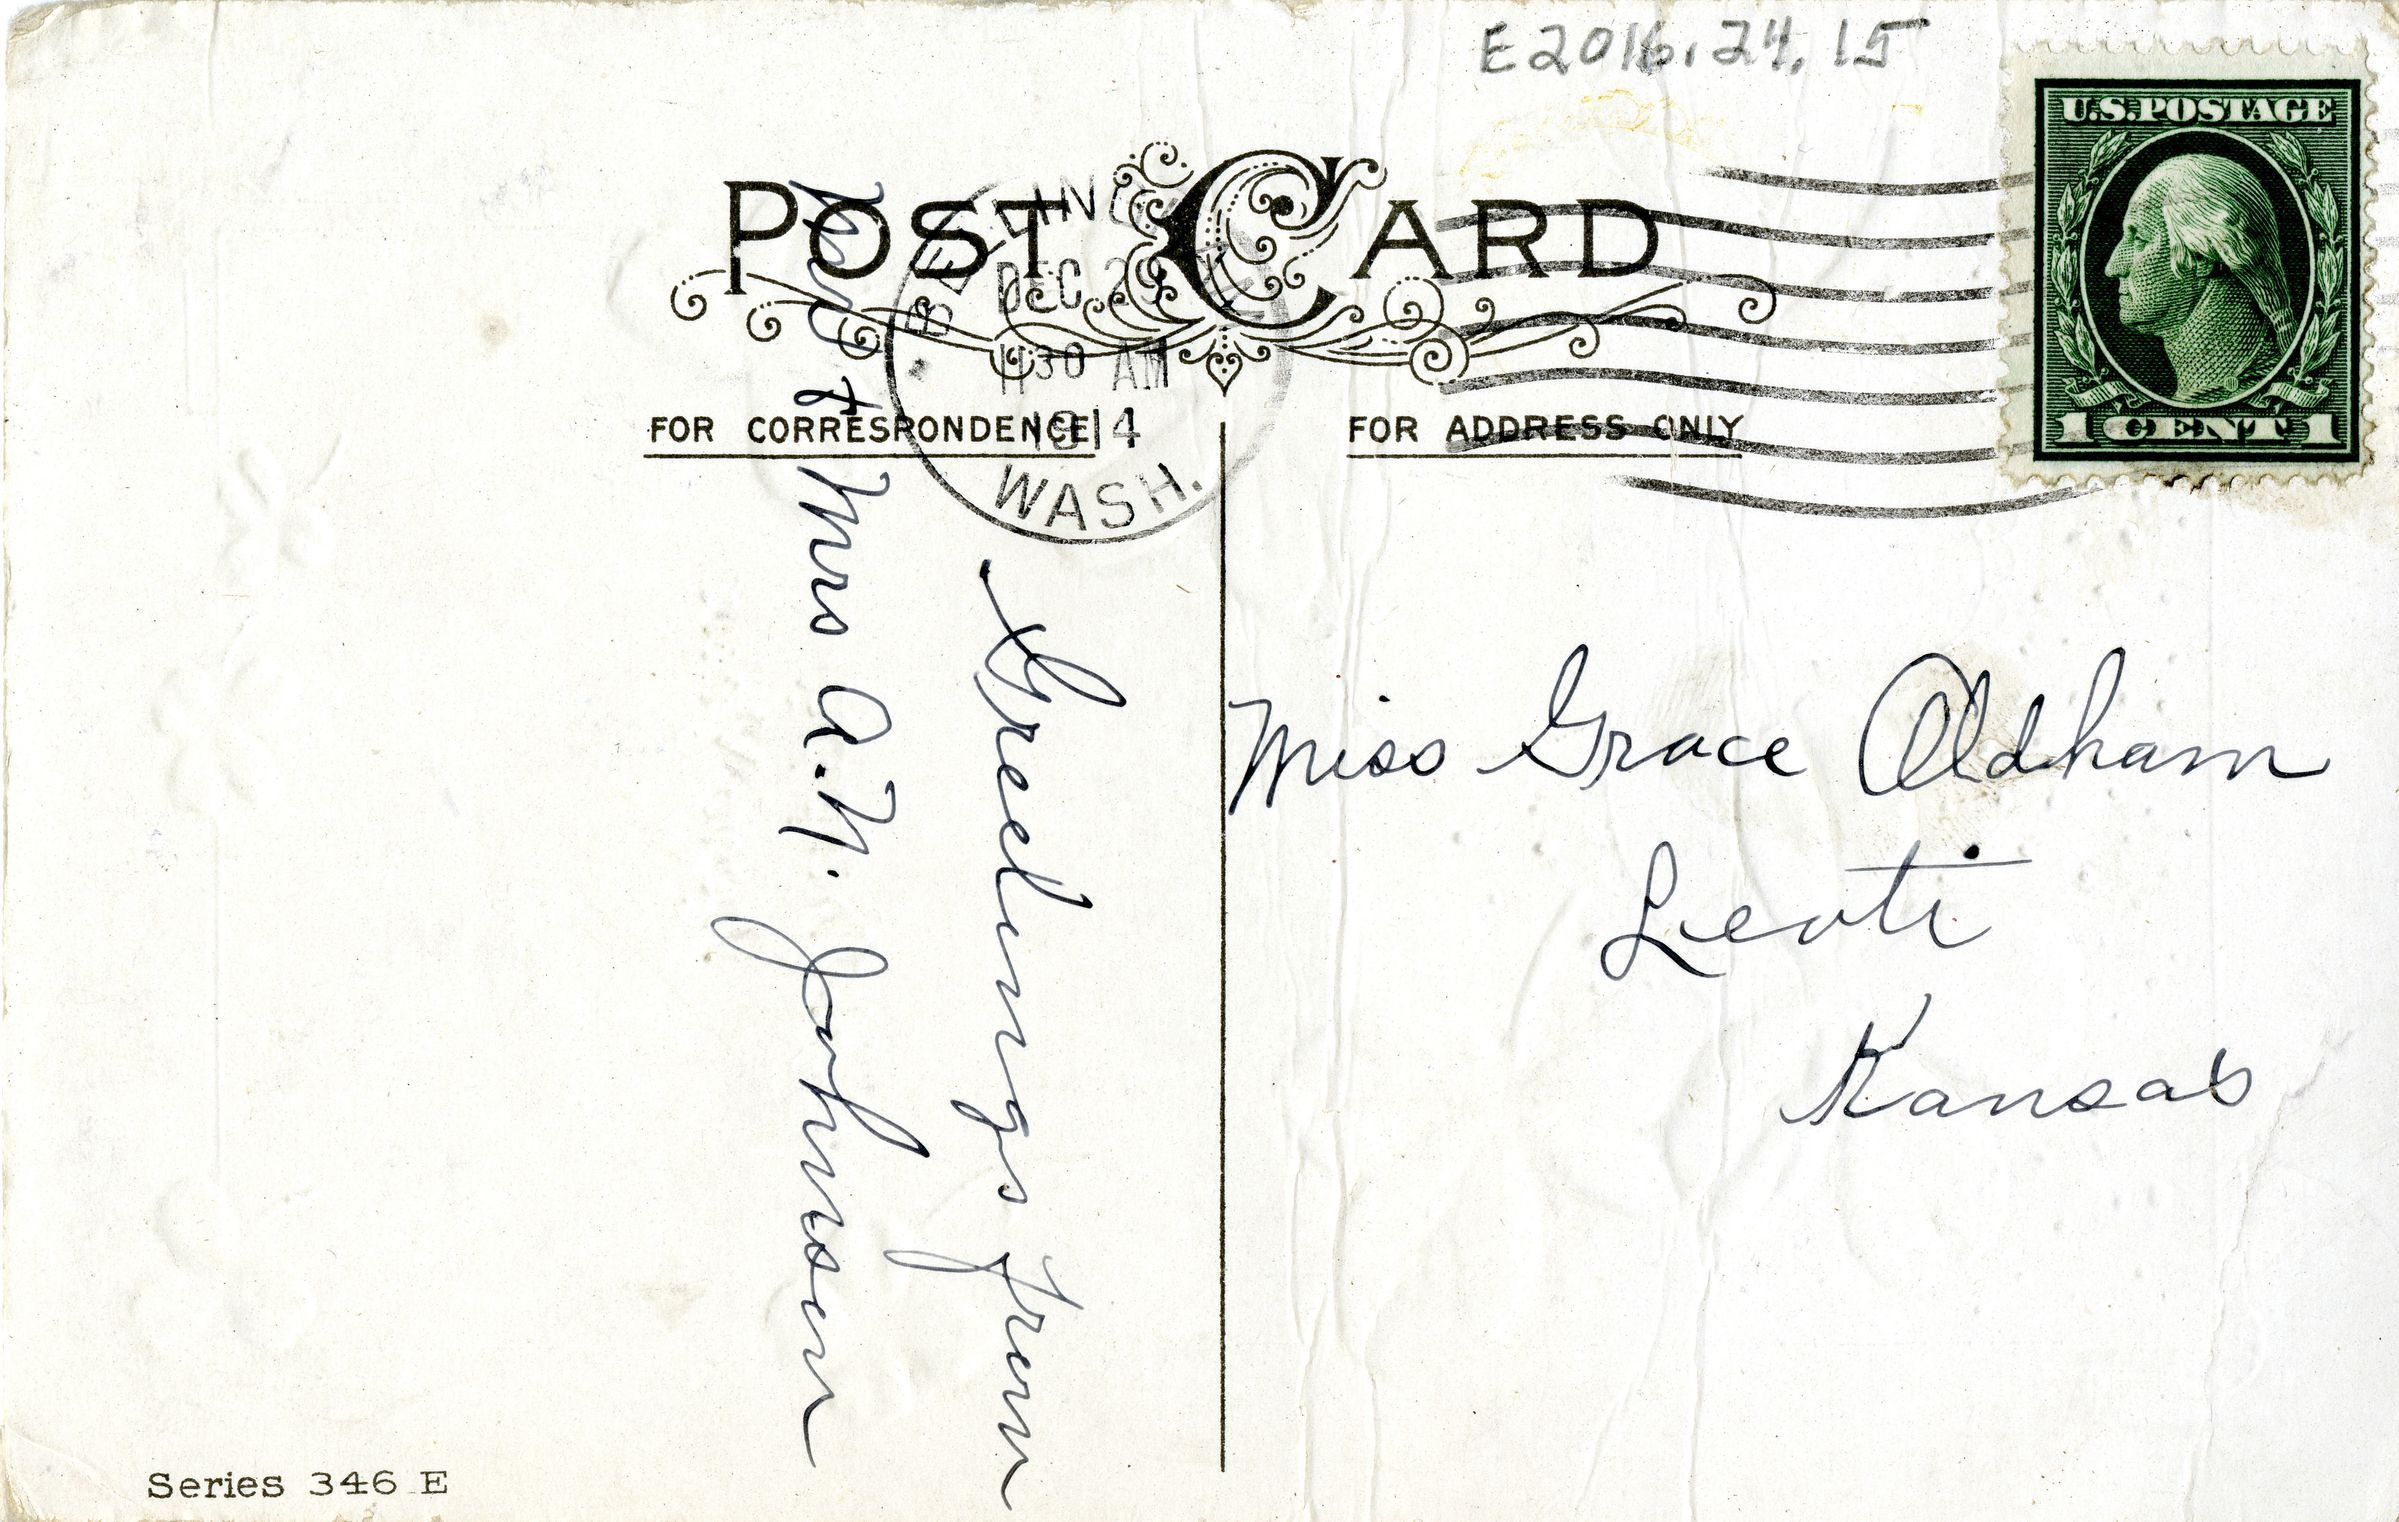 E2016.24.15
POST CARD
U.S. POSTAGE
1 CENT 1
DEC 29
1130 AM
1914
WASH.
FOR CORRESPONDENCE
FOR ADDRESS ONLY
Greetings from
& Mrs A.N. Johnson
Miss Grace Oldham
Leoti
Kansas
Series 346 E